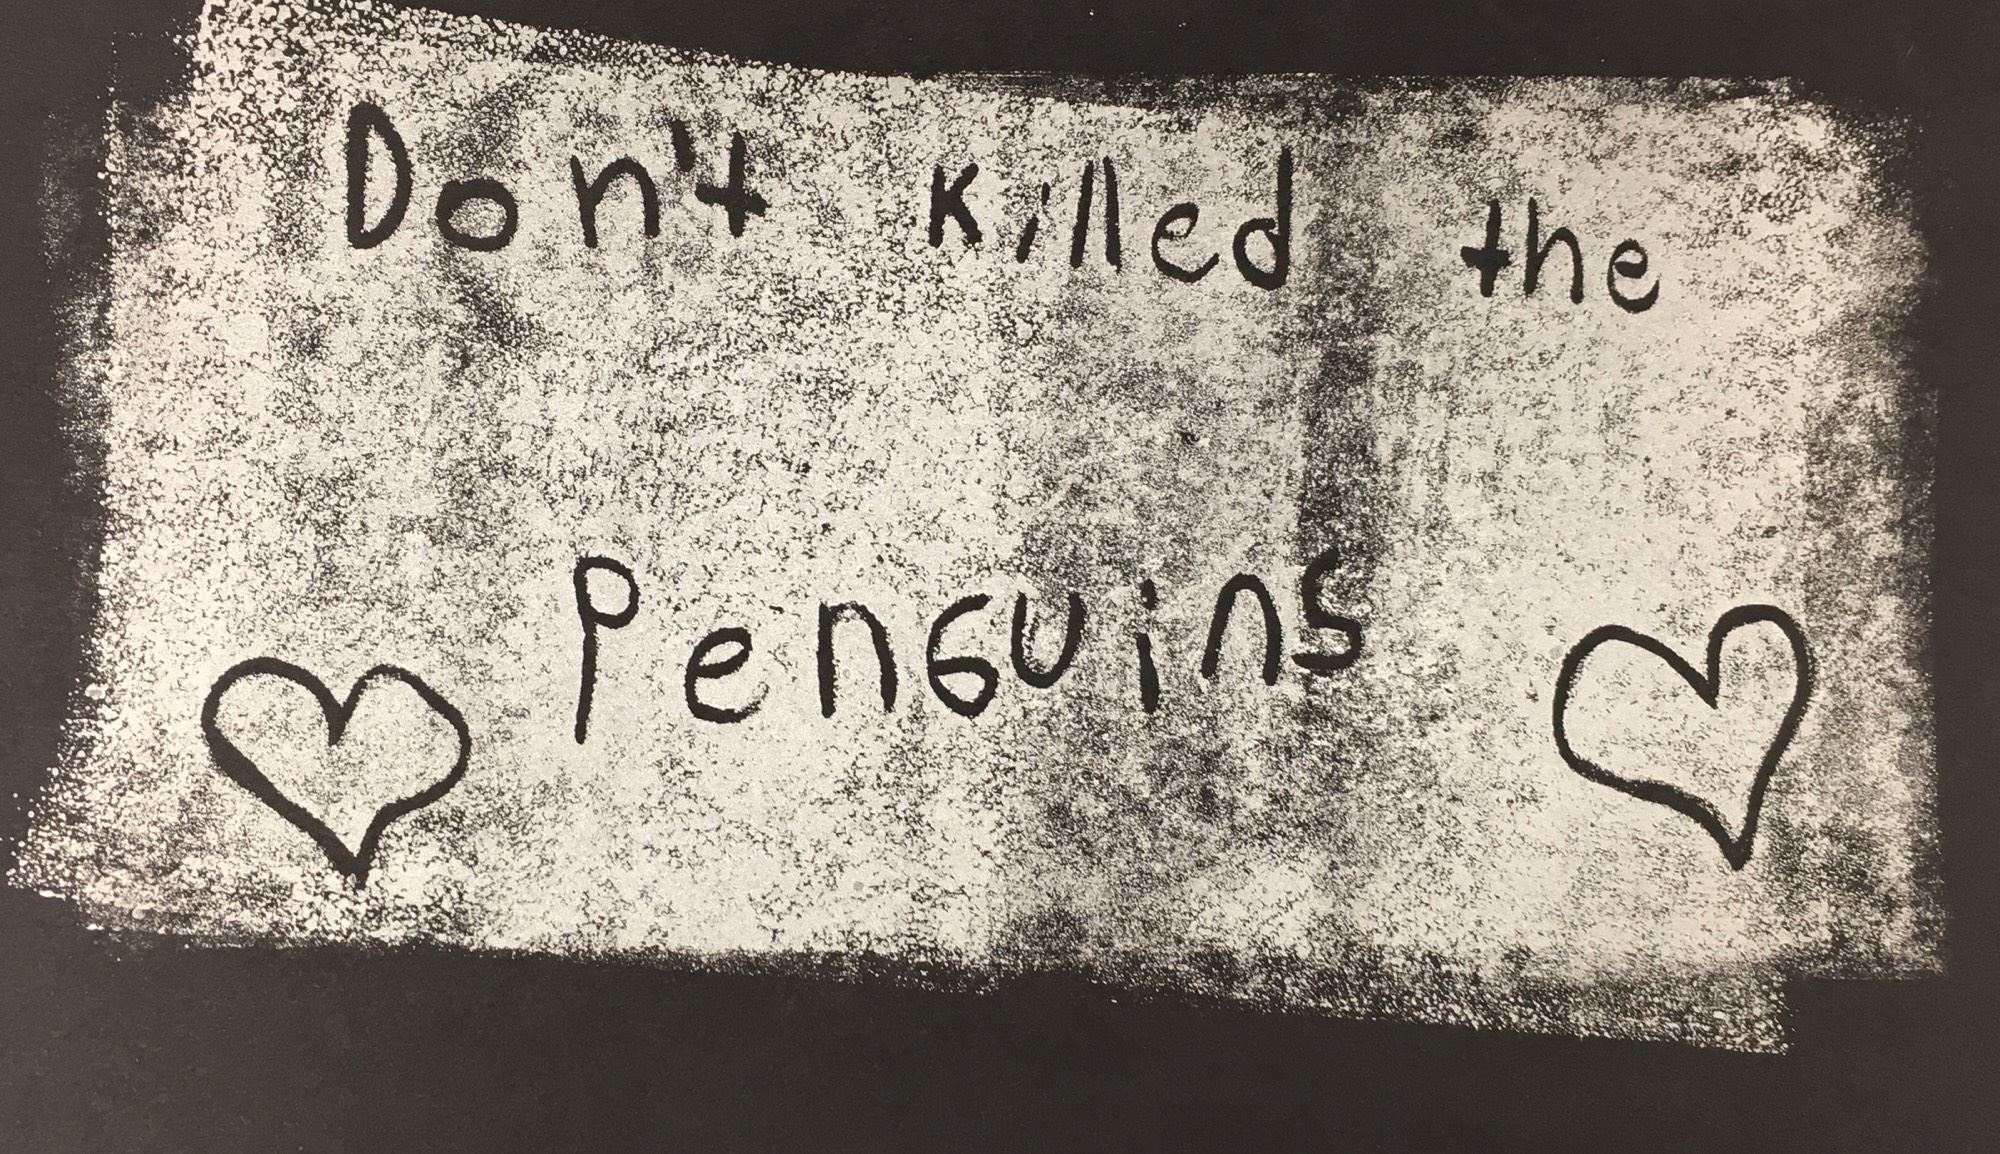 Don't killed the
Penguins